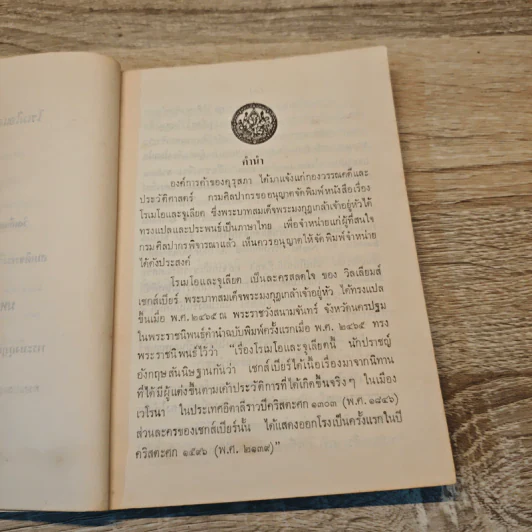 คำนำ
องค์การค้าของคุรุสภา ได้มาแจ้งแก่กองวรรณคดีและ
ประวัติศาสตร์ กรมศิลปากรขออนุญาตจัดพิมพ์หนังสือเรื่อง
โรเมโอและจูเลียต ซึ่งพระบาทสมเด็จพระมงกุฎเกล้าเจ้าอยู่หัวได้
ทรงแปลและประพนธ์เป็นภาษาไทย เพื่อจำหน่ายแก่ผู้ที่สนใจ
กรมศิลปากรพิจารณาแล้ว เห็นควรอนุญาตให้จัดพิมพ์จำหน่าย
ได้ดังประสงค์
โรเมโอและจูเลียต เป็นละครสลดใจ ของ วิลเลียมส์
เชกส์เปียร์ พระบาทสมเด็จพระมงกุฎเกล้าเจ้าอยู่หัว ได้ทรงแปล
ขึ้นเมื่อ พ.ศ. ๒๔๖๕ ณ พระราชวังสนามจันทร์ จังหวัดนครปฐม
ในพระราชนิพนธ์คำนำฉบับพิมพ์ครั้งแรกเมื่อ พ.ศ. ๒๔๖๕ ทรง
พระราชนิพนธ์ไว้ว่า "เรื่องโรเมโอและจูเลียตนี้ นักปราชญ์
อังกฤษสันนิษฐานกันว่า เชกส์เปียร์ได้เนื้อเรื่องมาจากนิทาน
ที่ได้มีผู้แต่งขึ้นตามเค้าประวัติการที่ได้เกิดขึ้นจริงๆ ในเมือง
เวโรนา ในประเทศอิตาลีราวปีคริสตะศก ๑๓๐๓ (พ.ศ. ๑๘๔๖)
ส่วนละครของเชกส์เปียร์นั้น ได้แสดงออกโรงเป็นครั้งแรกในปี
คริสตะศก ๑๕๙๖ (พ.ศ. ๒๑๓๙)"